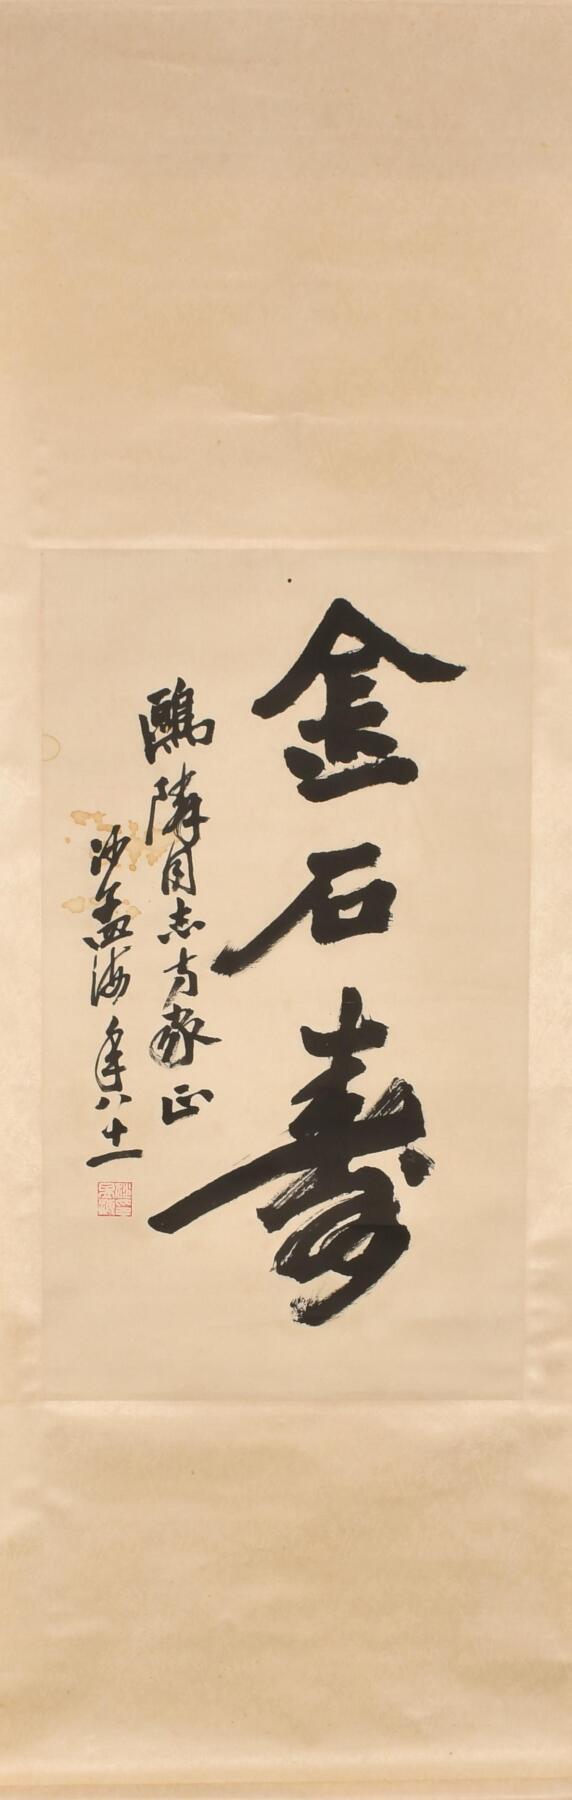 金石寿
鷗隣同志方家正
沙孟海年八十一